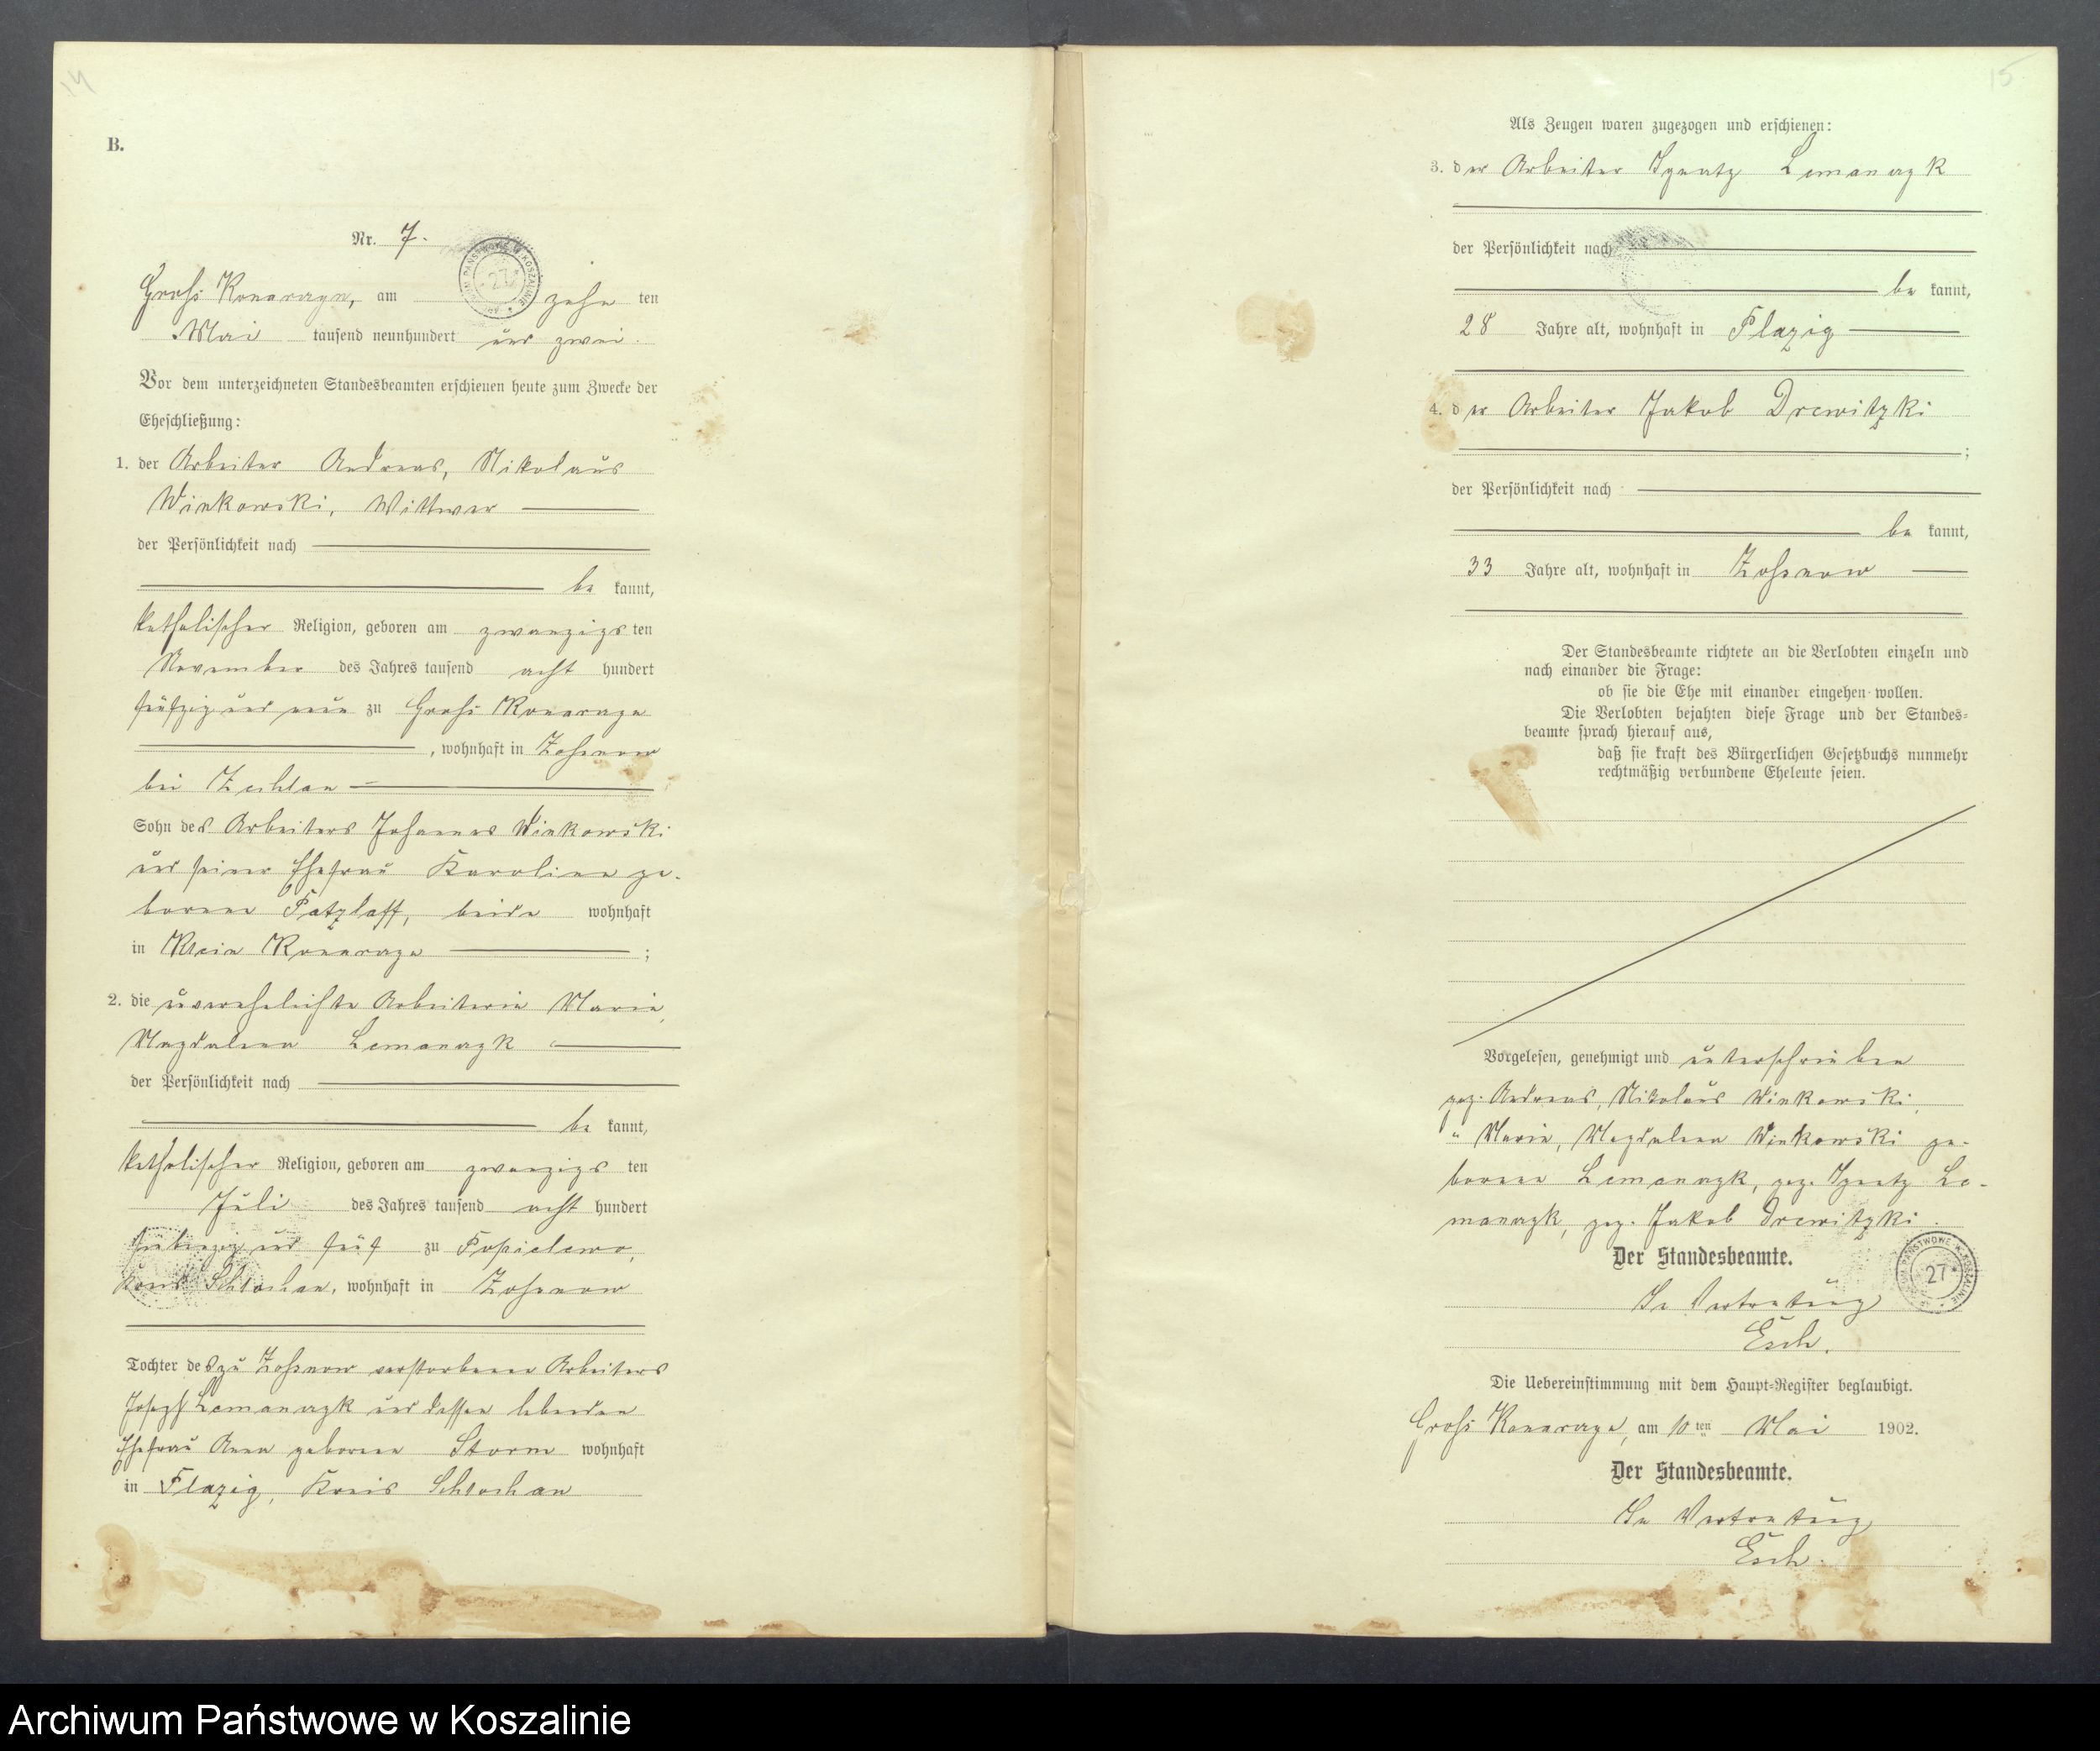 14
B.
Nr. 7.
Groß Konarczyn, am zehn ten
Mai tausend neunhundert und zwei.
Vor dem unterzeichneten Standesbeamten erschienen heute zum Zwecke der
Eheschließung:
1. der Arbeiter Andreas, Nikolaus
Winkowski, Wittwer
der Persönlichkeit nach
be kannt,
katholischer Religion, geboren am zwanzigs ten
November des Jahres tausend acht hundert
fünfzig und neun zu Groß Konarczyn
, wohnhaft in Zossnow
bei Zechlau
Sohn des Arbeiters Johannes Winkowski
und seiner Ehefrau Karoline ge-
borene Patzlaff, beide wohnhaft
in Klein Konarczyn ;
2. die unverehelichte Arbeiterin Marie,
Magdalena Lemanczyk
der Persönlichkeit nach
be kannt,
katholischer Religion, geboren am zwanzigs ten
Juli des Jahres tausend acht hundert
siebenzig und fünf zu
Kreis Schlochau, wohnhaft in Zossnow
Tochter des zu Zossnow verstorbenen Arbeiters
Joseph Lemanczyk und dessen lebenden
Ehefrau Anna geborene Storm wohnhaft
in Flazig, Kreis Schlochau
15
Als Zeugen waren zugezogen und erschienen:
3. der Arbeiter Ignatz Lemanczyk
der Persönlichkeit nach
be kannt,
28 Jahre alt, wohnhaft in Flazig
4. der Arbeiter Jakob Drewitzki
;
der Persönlichkeit nach
be kannt,
33 Jahre alt, wohnhaft in Zossnow
Der Standesbeamte richtete an die Verlobten einzeln und
nach einander die Frage:
ob sie die Ehe mit einander eingehen wollen.
Die Verlobten bejahten diese Frage und der Standes-
beamte sprach hierauf aus,
daß sie kraft des Bürgerlichen Gesetzbuchs nunmehr
rechtmäßig verbundene Eheleute seien.
Vorgelesen, genehmigt und unterschrieben
gez. Andreas, Nikolaus Winkowski,
" Marie, Magdalena Winkowski ge-
borene Lemanczyk, gez. Ignatz Le-
manczyk, gez. Jakob Drewitzki.
Der Standesbeamte.
27
In Vertretung
Esch.
Die Uebereinstimmung mit dem Haupt-Register beglaubigt.
Groß Konarczyn, am 10ten Mai 1902.
Der Standesbeamte.
In Vertretung
Esch.
Archiwum Państwowe w Koszalinie